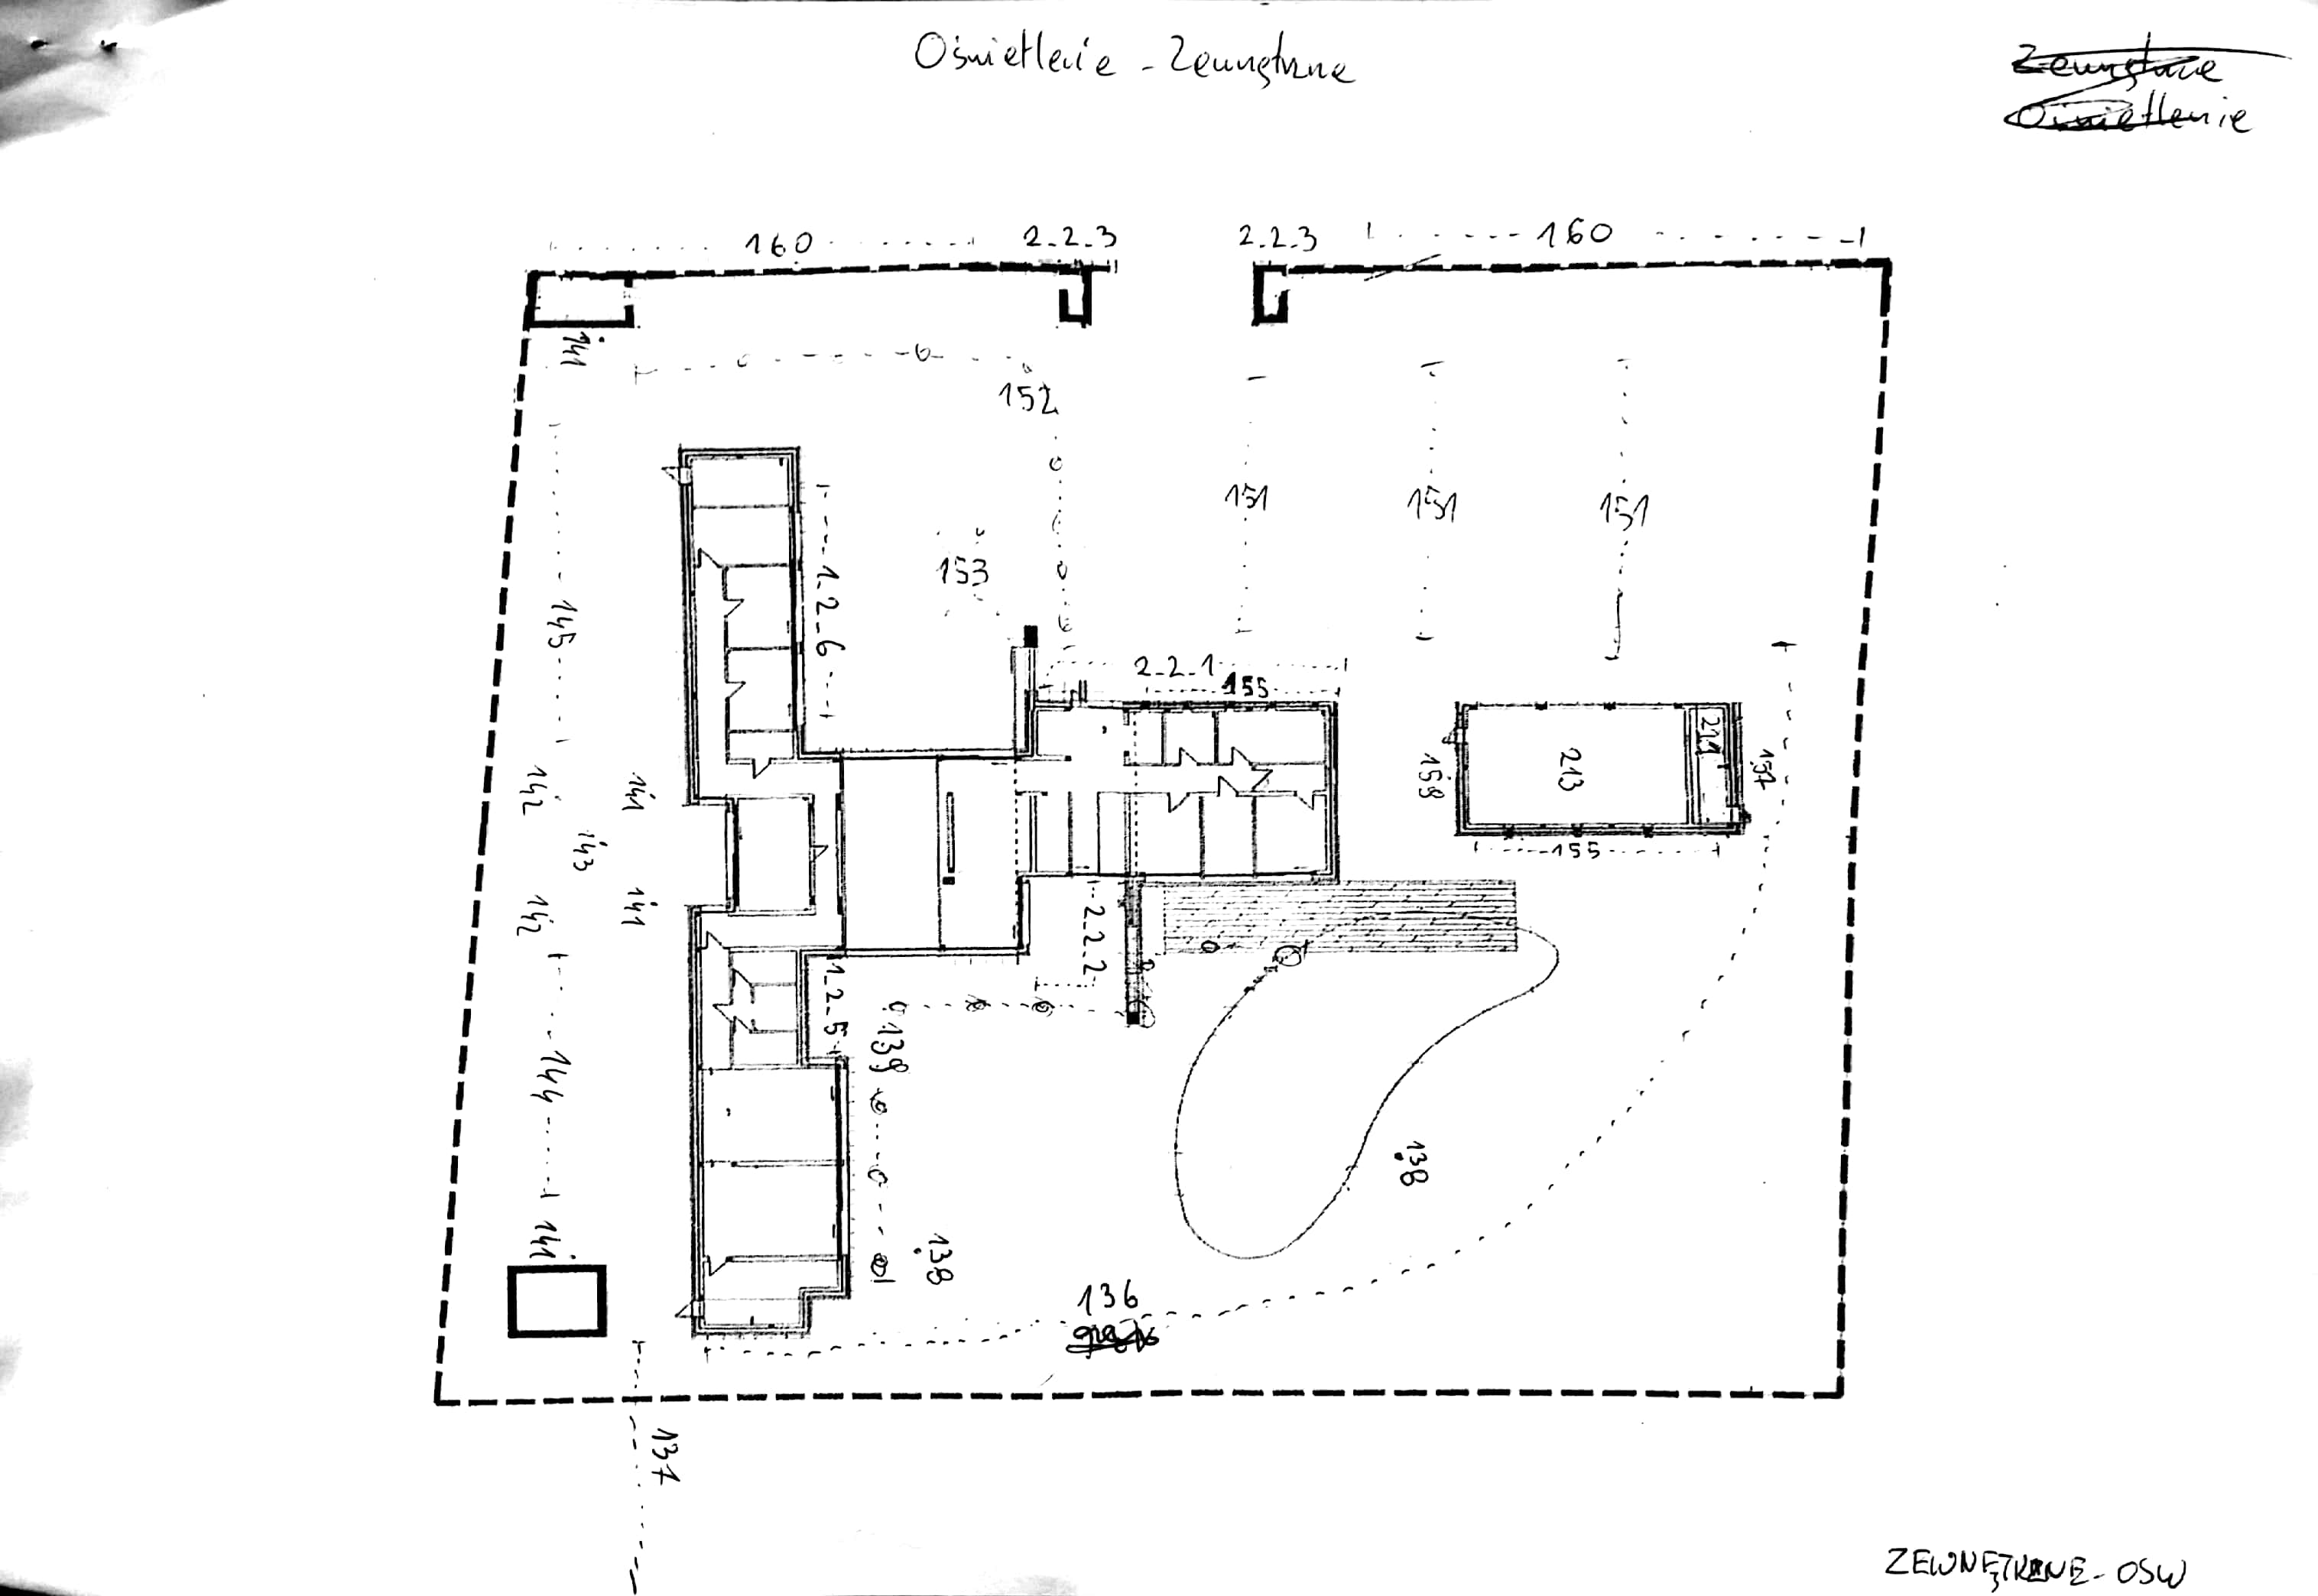 Oświetlenie - Zewnętrzne
Zewnętrzne
Oświetlenie
160
2-2-3
2-2-3
160
141
152
151
151
151
153
1-2-6
145
2-2-1
155
142
141
143
142
141
158
213
211
157
155
2-2-2
1-2-5
139
144
138
138
141
136
137
ZEWNĘTRZNE - OSW